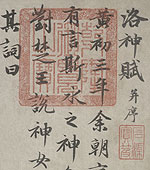 洛神賦 并序
黄初三年余朝京
有言斯水之神名
對楚王說神女
其詞曰